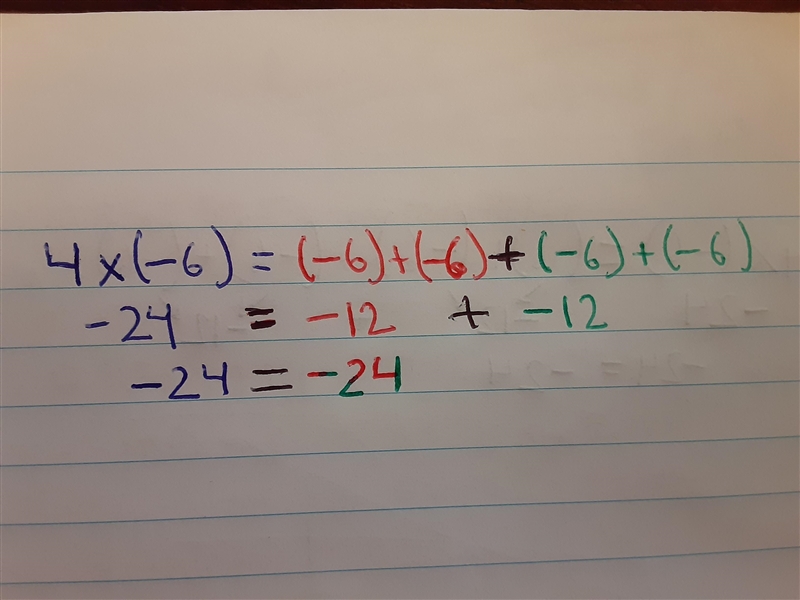 4 x (-6) = (-6) + (-6) + (-6) + (-6)
-24 = -12 + -12
-24 = -24